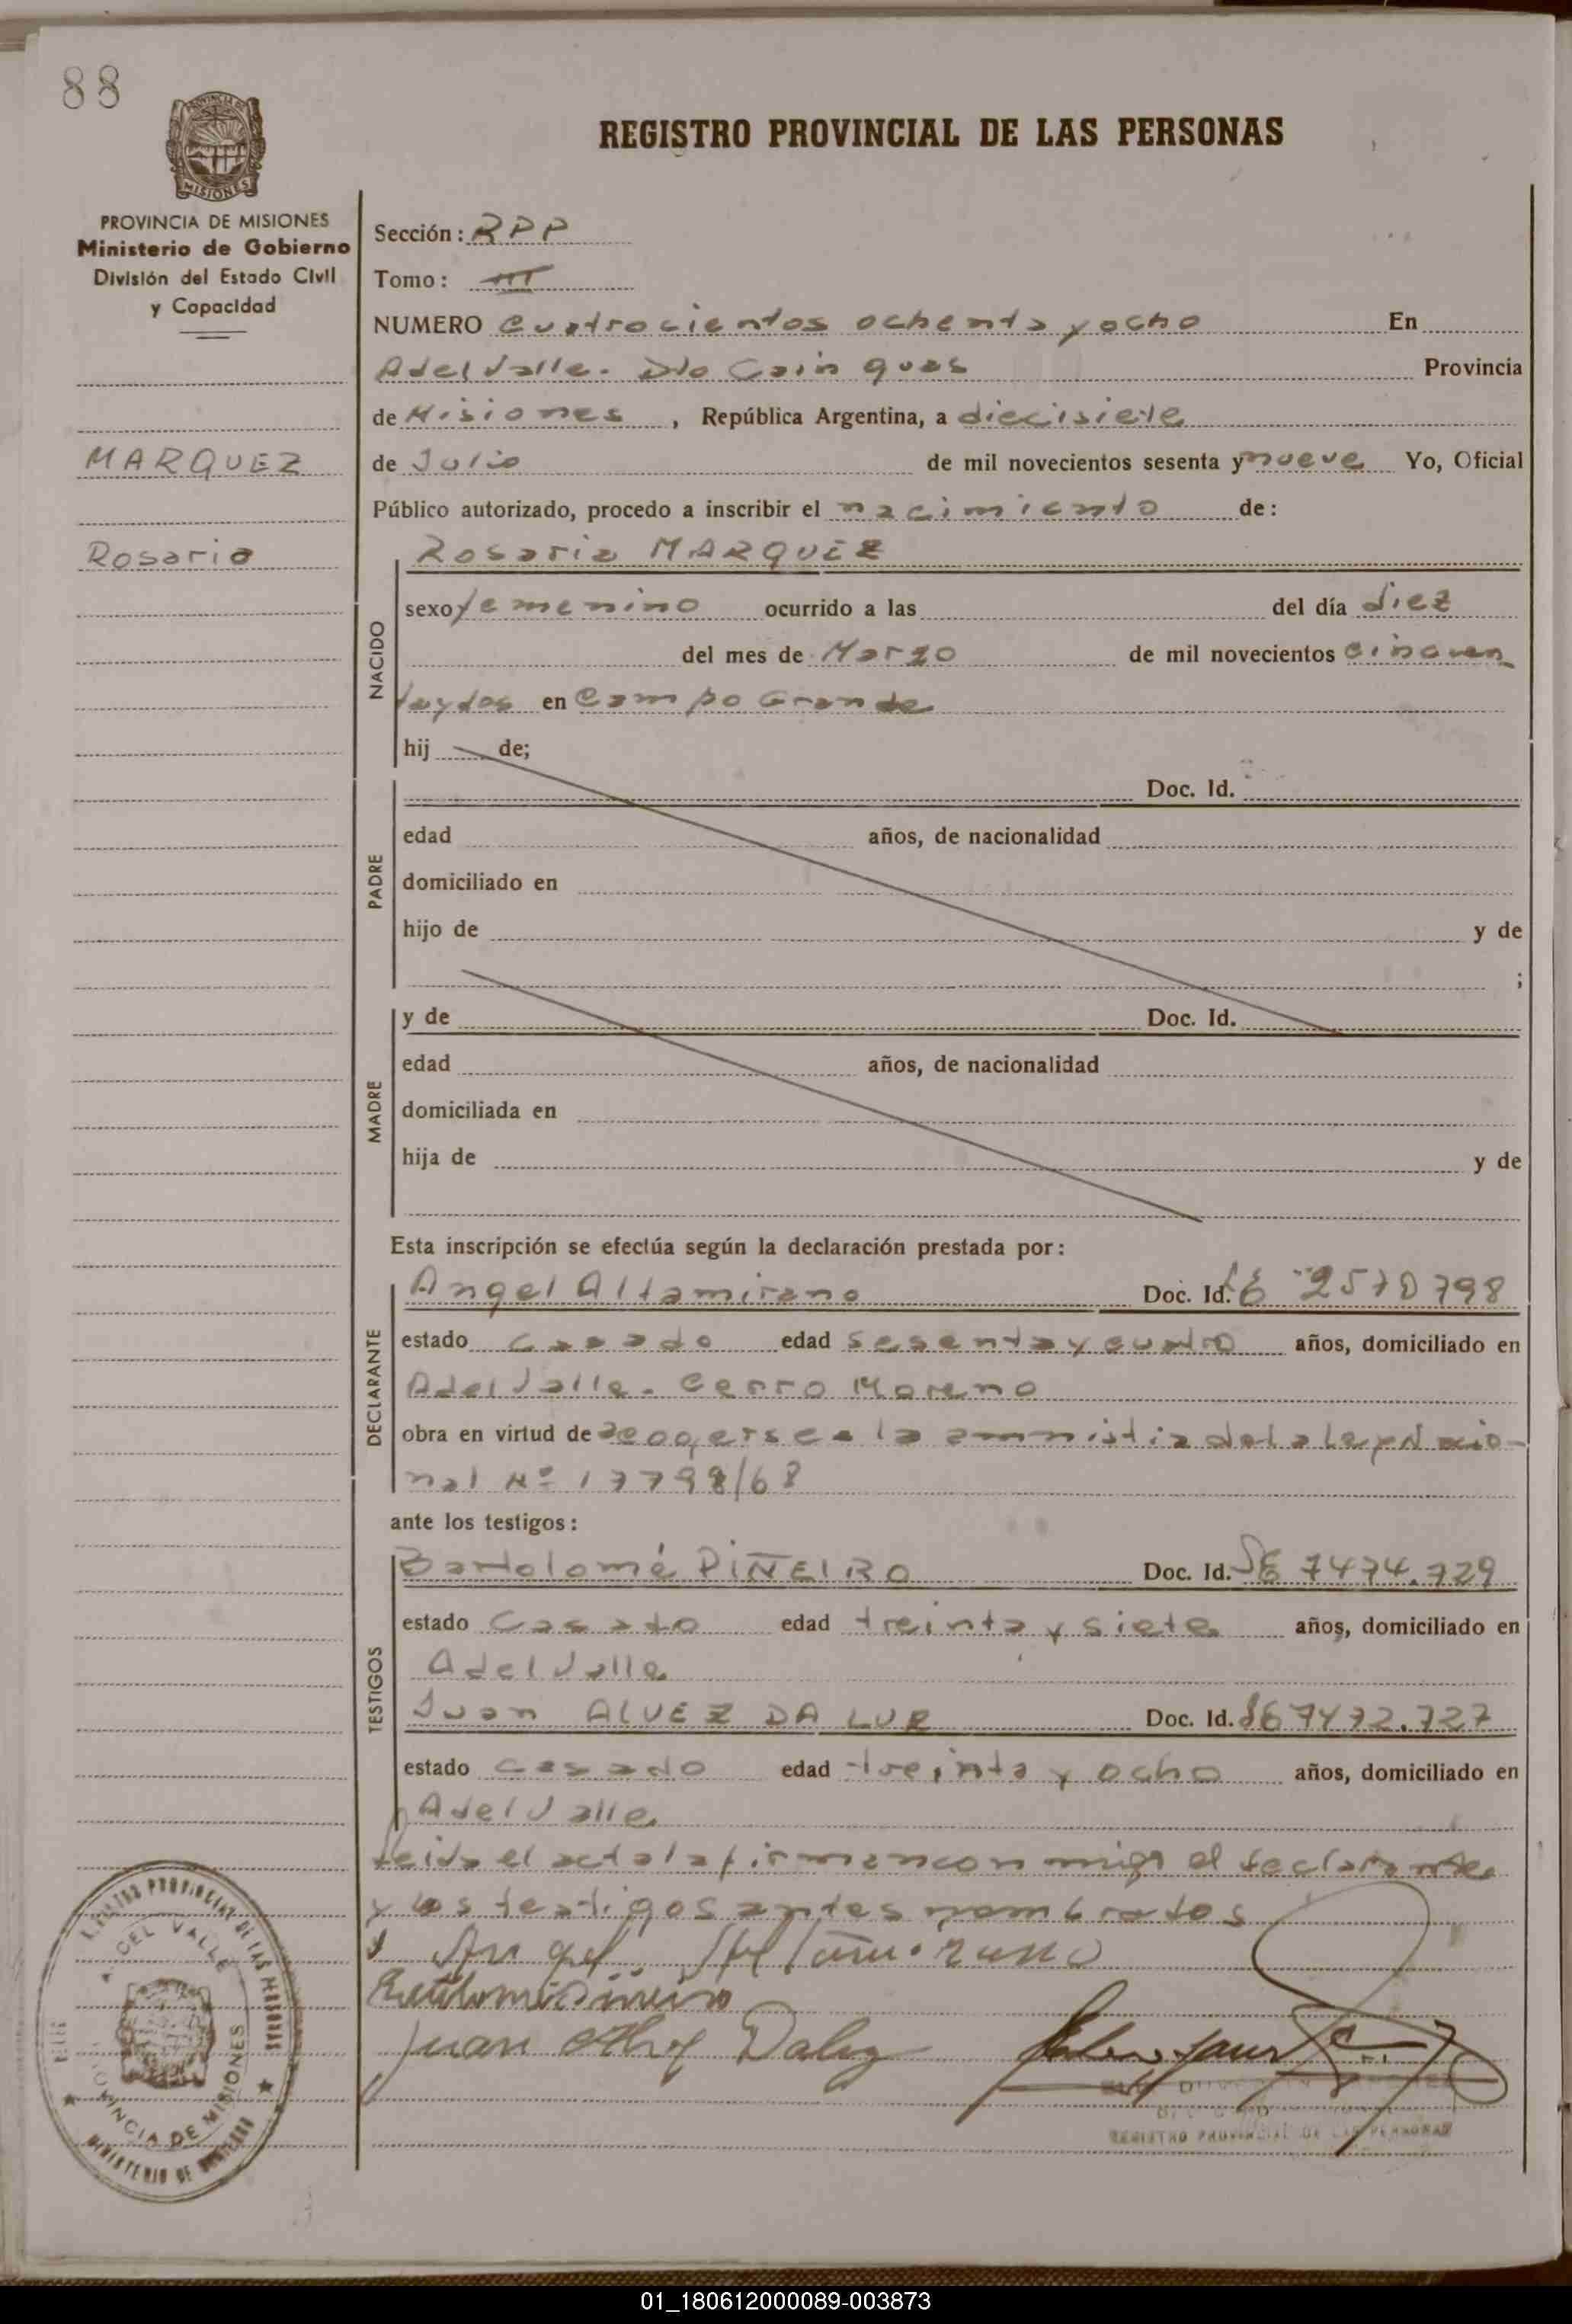 88
REGISTRO PROVINCIAL DE LAS PERSONAS
PROVINCIA DE MISIONES
Ministerio de Gobierno
División del Estado Civil
y Capacidad
MARQUEZ
Rosario
Sección: RPP
Tomo: III
NUMERO cuatrocientos ochenta y ocho En
A del Valle. Dto Cainguas Provincia
de Misiones, República Argentina, a diecisiete
de Julio de mil novecientos sesenta y nueve Yo, Oficial
Público autorizado, procedo a inscribir el nacimiento de:
NACIDO
Rosario MARQUEZ
sexo femenino ocurrido a las del día diez
del mes de Marzo de mil novecientos cincuen
ta y dos en Campo Grande
hij de;
PADRE
Doc. Id.
edad años, de nacionalidad
domiciliado en
hijo de y de
;
MADRE
y de Doc. Id.
edad años, de nacionalidad
domiciliada en
hija de y de
Esta inscripción se efectúa según la declaración prestada por:
DECLARANTE
Angel Altamirano Doc. Id. LE 2570798
estado casado edad sesenta y cuatro años, domiciliado en
A del Valle. Cerro Moreno
obra en virtud de acogerse a la amnistia de la Ley Nacio-
nal Nº 17798/68
ante los testigos:
TESTIGOS
Bartolomé PIÑEIRO Doc. Id. LE 7474.729
estado Casado edad treinta y siete años, domiciliado en
A del Valle
Juan ALVEZ DA LUR Doc. Id. 7472.727
estado casado edad treinta y ocho años, domiciliado en
A del Valle
leida el acta la firman con migo el declarante
y los testigos antes nombrados
Angel Altamirano
Juan Daluz
REGISTRO PROVINCIAL DE LAS PERSONAS
A. DEL VALLE
PROVINCIA DE MISIONES
MINISTERIO DE GOBIERNO
REGISTRO PROVINCIAL DE LAS PERSONAS
01_180612000089-003873